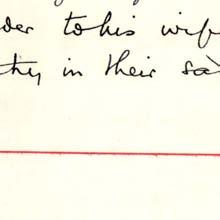 der to his wife
thy in their sad